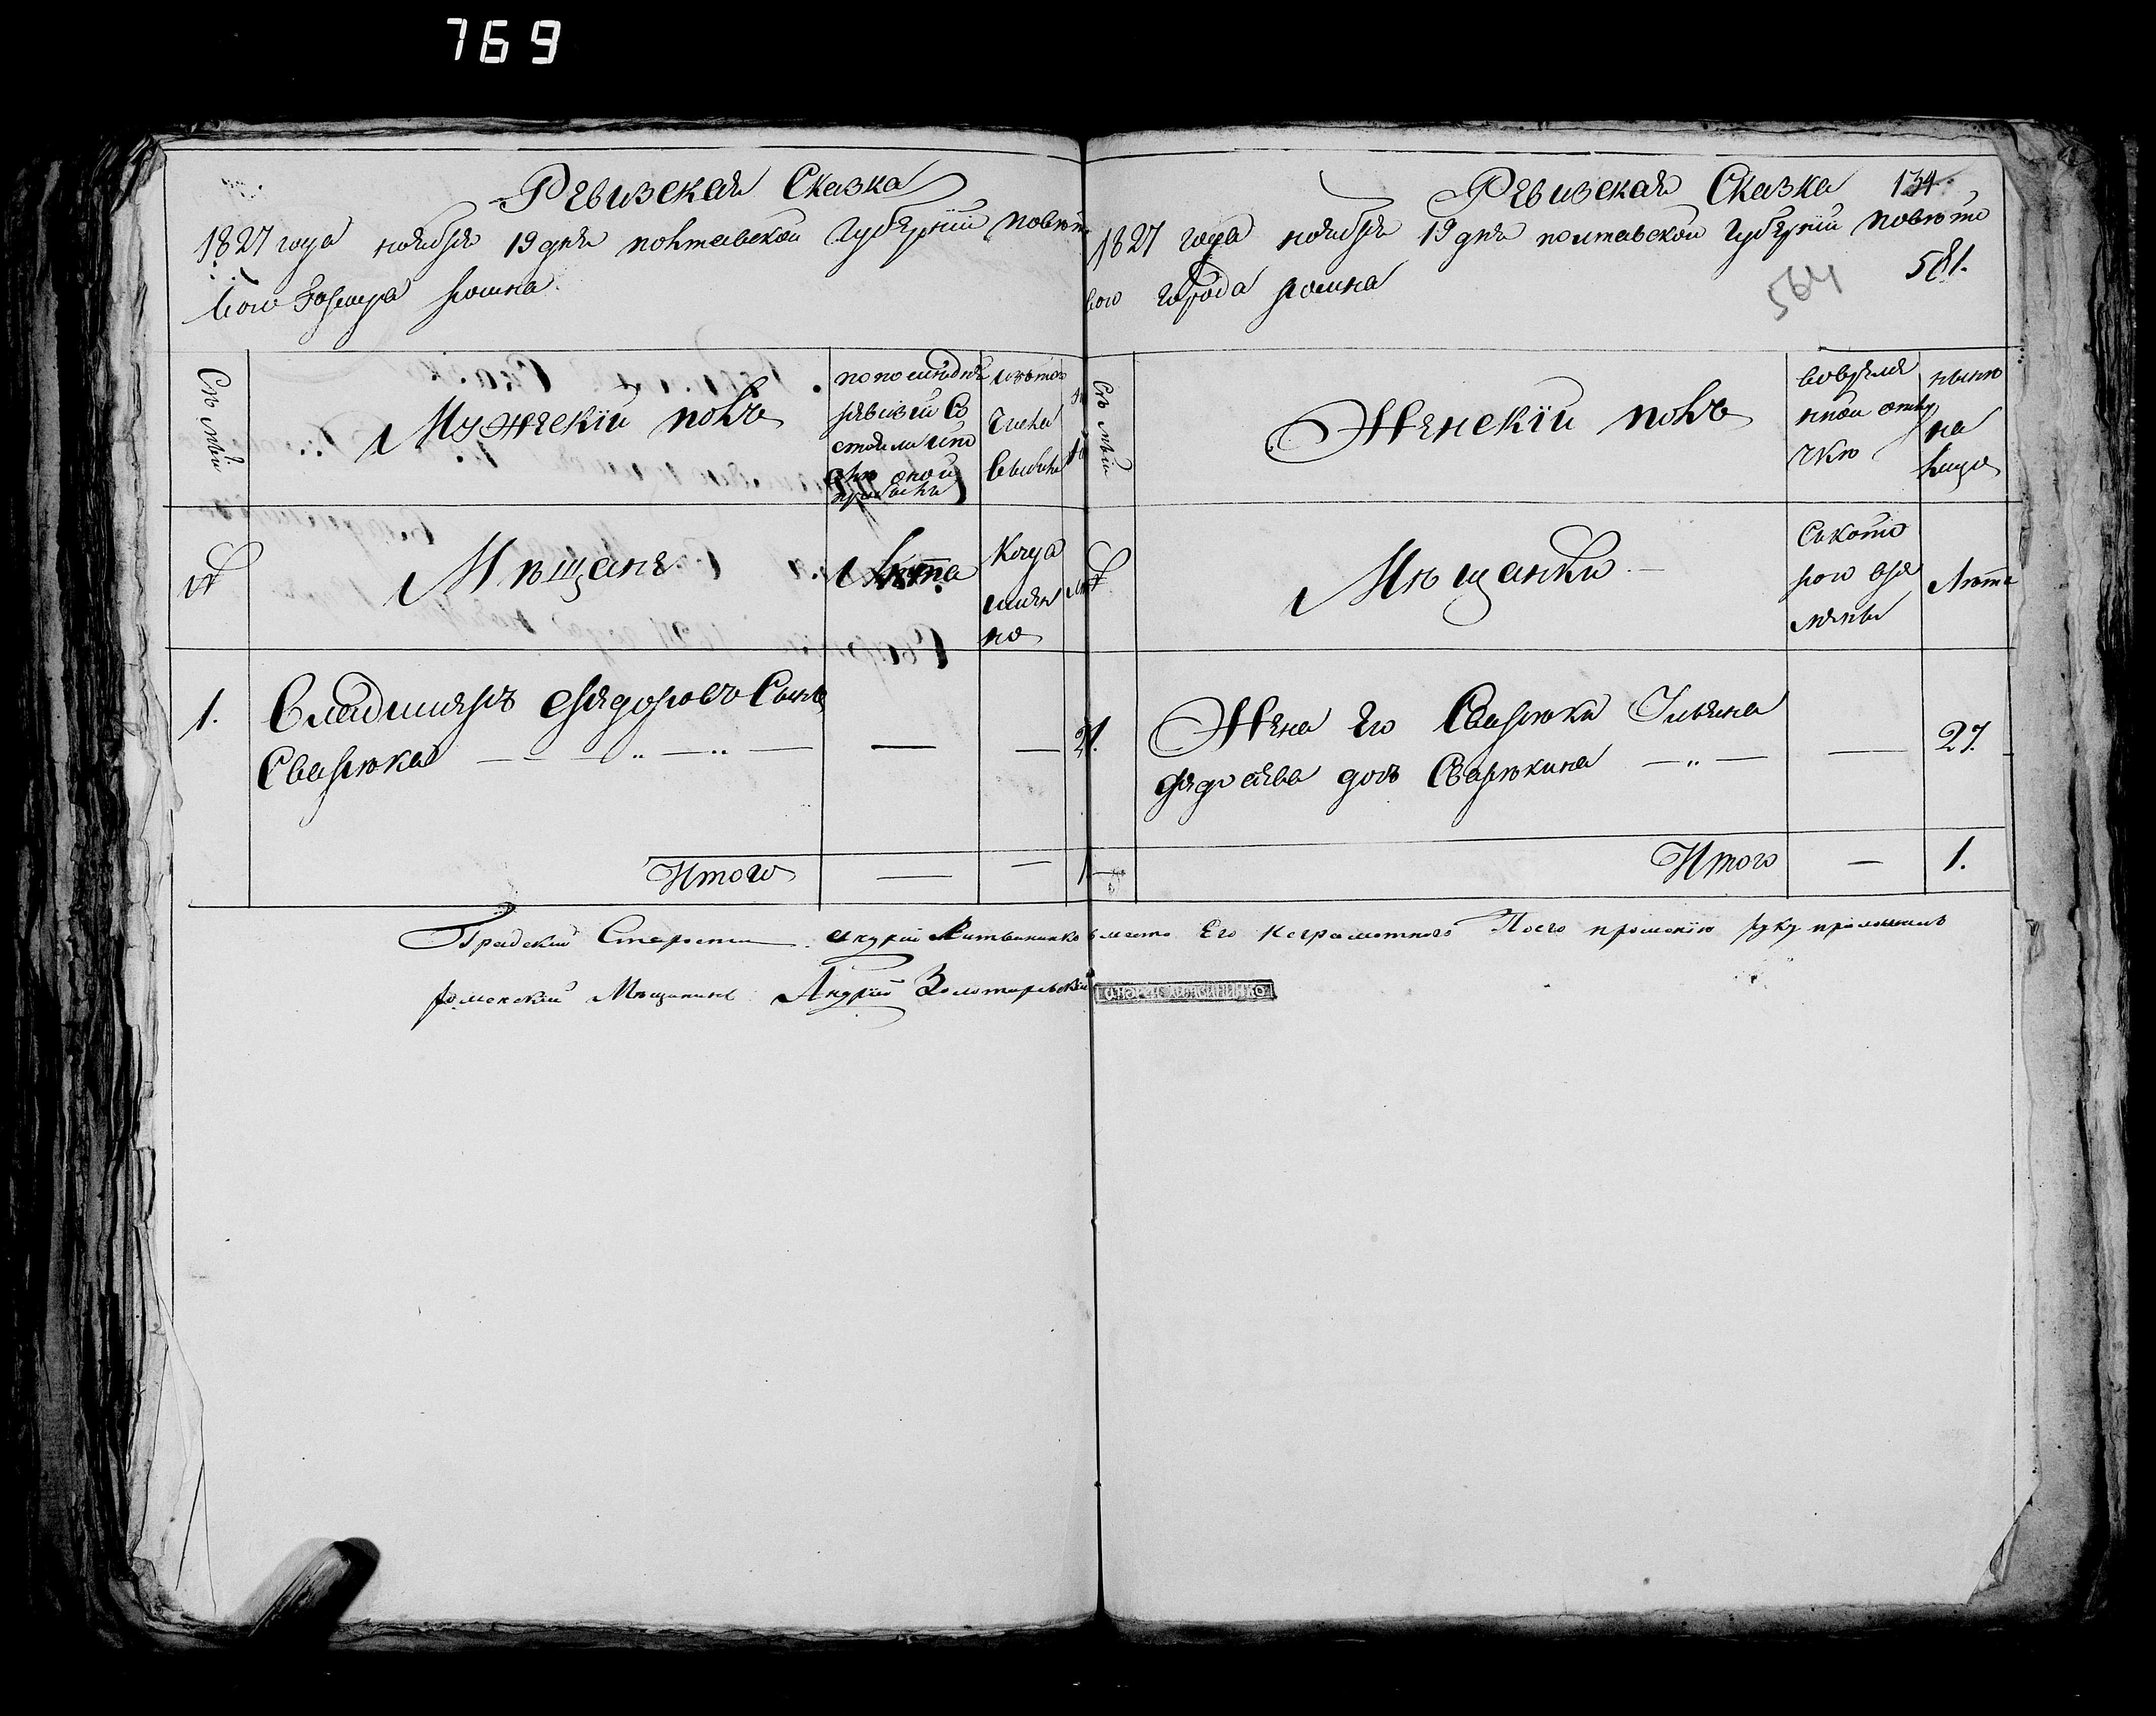 769
Ревизская Сказка
1827 года ноября 19 дня полтавской Губернїи повѣто
вого Города ромна
Мужескїй полъ
по последней
ревизїи Со
стояло и по
Изъ того
числа
выбыло
№
Мѣщане
Лѣта
Когда
имен
но
1.
Владимеръ Федоровъ Сынъ
Сварюка — — „ — „ —
—
—
Итого
—
—
Ревизская Сказка 134.
1827 года ноября 19 дня полтавской Губернїи повѣто
вого города ромна
564
581.
Женскїй полъ
во време
нной отлу
чкѣ
нынѣ
на
лицо
Мѣщанки
Съ кото
рого вре
мены
Лѣта
1.
Жена Его Сварюки Ульяна
дочь Сварюкина — „ —
—
27.
Итого
—
1.
Градскїй Староста Андрей Литвиненко вместо Его неграмотного По его прошенїю руку приложилъ
роменскїй Мещанинъ Андрей Золотаревскїй
АНДРЕЙ ЛИТВИНЕНКО